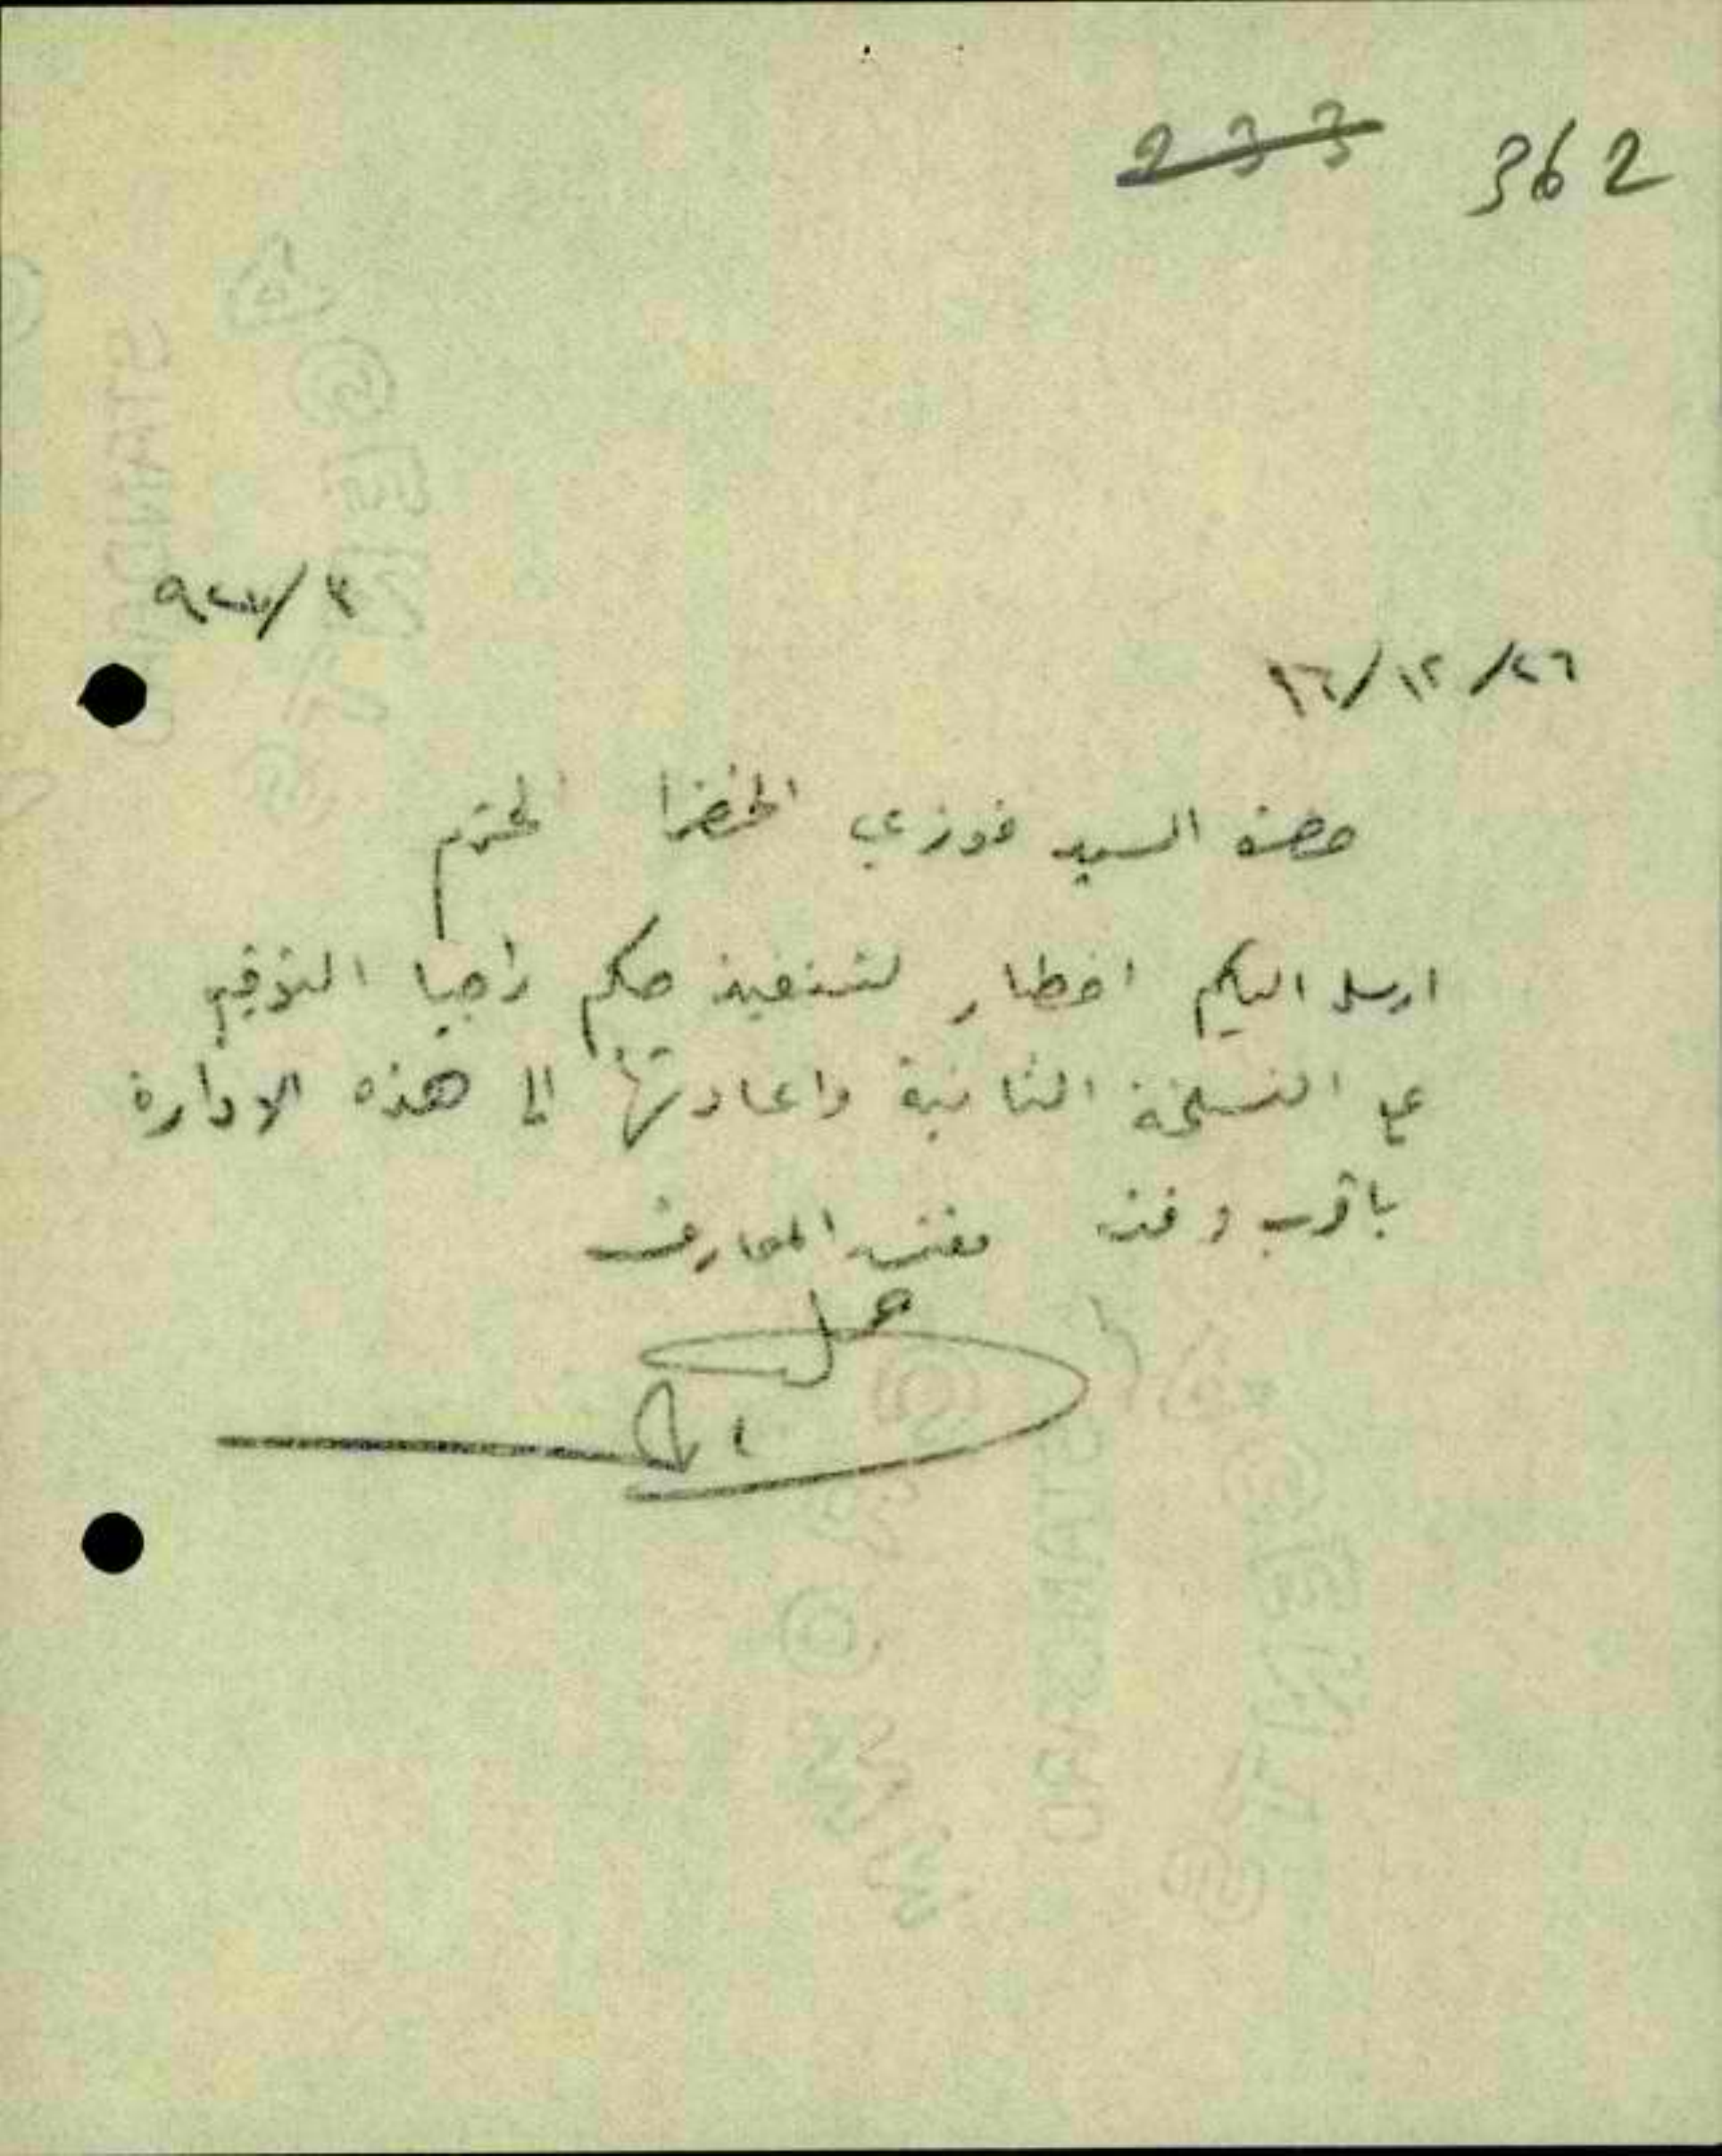 233 362
٣/
٢٦/١٢/
حضرة السيد فوزي الخضرا المحترم
ارسل اليكم اخطار لتنفيذ حكم راجيا التوقيع
على النسخة الثانية واعادتها الى هذه الادارة
باقرب وقت مفتش المعارف